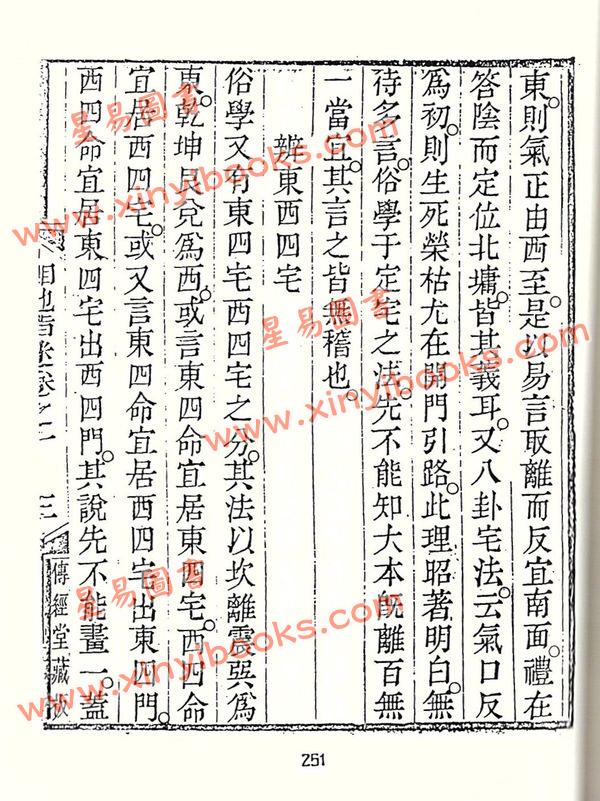 東則氣正由西至是以易言取離而反宜南面禮在
答陰而定位北墉皆其義耳又八卦宅法云氣口反
爲初則生死榮枯尤在開門引路此理昭著明白無
待多言俗學于定宅之法先不能知大本旣離百無
一當宜其言之皆無稽也
辨東西四宅
俗學又有東四宅西四宅之分其法以坎離震巽爲
東乾坤艮兌爲西或言東四命宜居東四宅西四命
宜居西四宅或又言東四命宜居西四宅出東四門
西四命宜居東四宅出西四門其說先不能畫一蓋
相地指迷卷之二
三
傳經堂藏板
251
星易圖書
www.xinyibooks.com
星易圖書
www.xinyibooks.com
星易圖書
www.xinyibooks.com